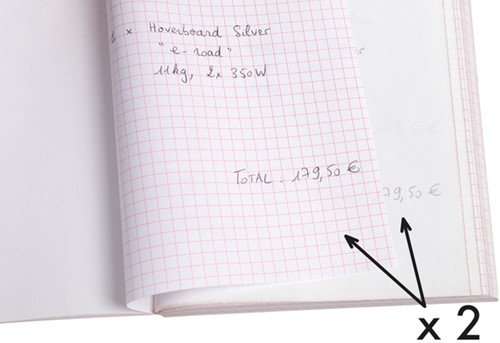 x Hoverboard Silver
"e-road"
11kg, 2x 350W
TOTAL. 179,50 €
79,50 €
x 2